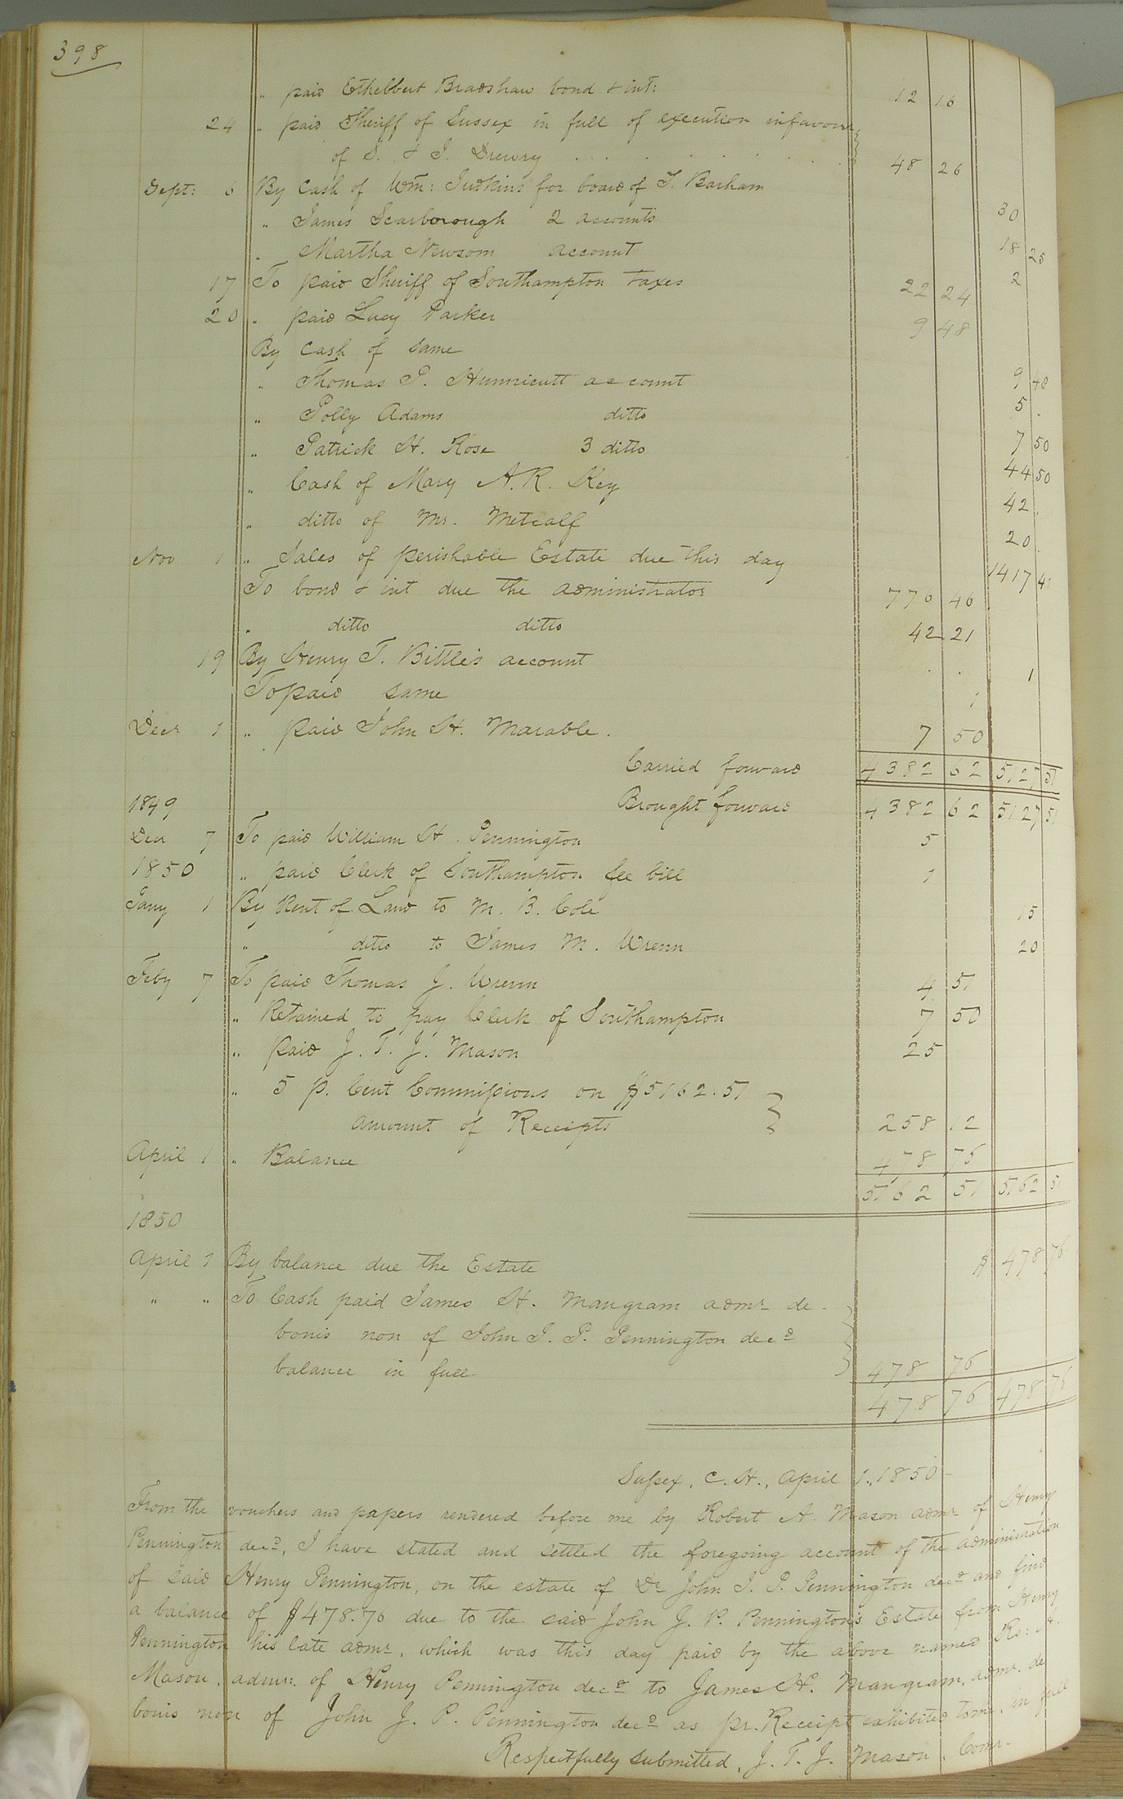 398
" paid Ethelbert Bradshaw bond & int: 12 16
24 " paid Sheriff of Sussex in full of execution in favour
of S. & J. Drewry . . . . . . . 48 26
Sept: 6 By Cash of Wm: Judkins for board of T. Barham 30
" James Scarborough 2 accounts 18 25
" Martha Newsom account 2
17 To paid Sheriff of Southampton taxes 22 24
20 " paid Lucy Parker 9 48
By Cash of same 9 48
" Thomas P. Hunnicutt account 5 .
" Polly Adams ditto 7 50
" Patrick H. Rose 3 ditto 44 50
" Cash of Mary A. R. Key 42 .
" ditto of Mr. Metcalf 20
Nov 1 " Sales of perishable Estate due this day 1417 4
To bond & int due the administrator 770 46
" ditto ditto 42 21
19 By Henry T. Bittle's account 1
To paid same 1
Decr 1 " paid John H. Marable . 7 50
Carried forward 4382 62 5127 51
1849 Brought forward 4382 62 5127 51
Decr 7 To paid William H. Pennington 5
1850 " paid Clerk of Southampton fee bill 1
Jany 1 By Rent of Land to M. B. Cole 15
" ditto to James M. Wrenn 20
Feby 7 To paid Thomas J. Wrenn 4 51
" Retained to pay Clerk of Southampton 7 50
" paid J. T. J. Mason 25
" 5 p. Cent Commissions on $5162.51
amount of Receipts 258 12
April 1 " Balance 478 76
5162 51 5162 51
1850
April 1 By balance due the Estate $ 478 76
" " To Cash paid James H. Mangram admr de
bonis non of John J. P. Pennington decd
balance in full 478 76
478 76 478 76
Sussex, C. H., April 1., 1850
From the vouchers and papers rendered before me by Robert A. Mason admr of Henry
Pennington decd, I have stated and settled the foregoing account of the administration
of said Henry Pennington, on the estate of Dr John J. P. Pennington decd and find
a balance of $478.76 due to the said John J. P. Pennington's Estate from Henry
Pennington his late admr, which was this day paid by the above named Ro: A.
Mason, admr: of Henry Pennington decd to James H. Mangram, admr. de
bonis non of John J. P. Pennington decd as pr. Receipt exhibited to me, in full
Respectfully submitted, J. T. J. Mason, Comr.